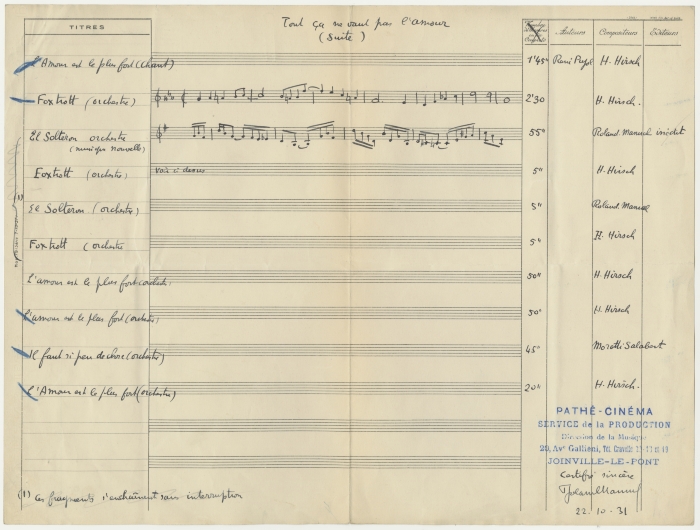 Tout ça ne vaut pas l'amour
(Suite)
TITRES
Auteurs
Compositeurs
Editeurs
L'Amour est le plus fort (Chant) 1'45" René Pujol H. Hirsch
Foxtrott (orchestre) 2'30 H. Hirsch.
El Solteron orchestre 55" Roland Manuel inédit
(musique nouvelle)
Foxtrott (orchestre) Voir ci dessus 5" H. Hirsch
El Solteron (orchestre) 5" Roland. Manuel
Foxtrott (orchestre 5" H. Hirsch
L'amour est le plus fort (orchestre) 50" H. Hirsch
L'amour est le plus fort (orchestre) 50" H. Hirsch
Il faut si peu de chose (orchestre) 45" Moretti Salabert
L'Amour est le plus fort (orchestre) 20" H. Hirsch.
PATHÉ-CINÉMA
SERVICE de la PRODUCTION
Direction de la Musique
20, Avᵉ Gallieni, Tél. Gravelle
JOINVILLE-LE-PONT
Certifié sincère
Roland Manuel
22.10.31
(1)
(1) Ces fragments s'enchaînent sans interruption